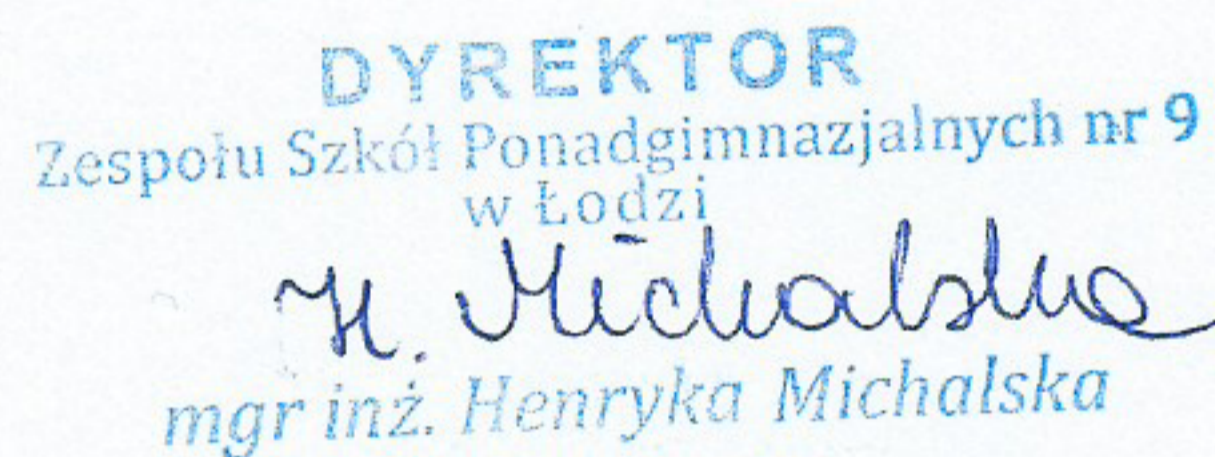 DYREKTOR
Zespołu Szkół Ponadgimnazjalnych nr 9
w Łodzi
H. Michalska
mgr inż. Henryka Michalska